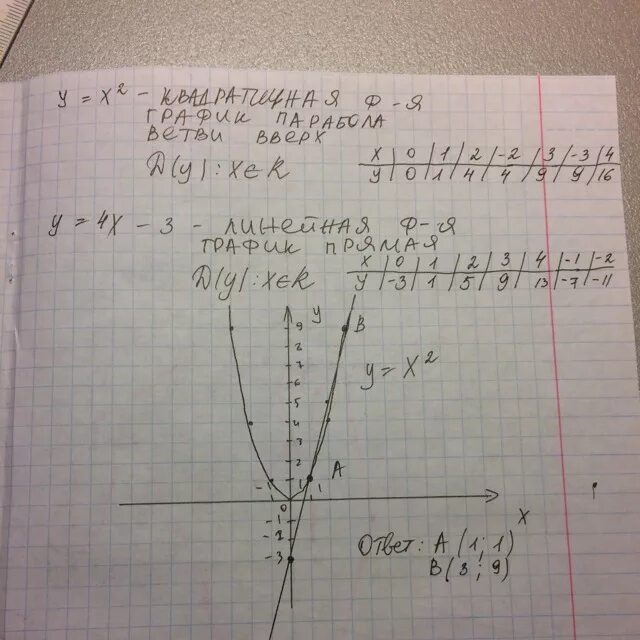 y = x² - КВАДРАТИЧНАЯ Ф-Я
ГРАФИК ПАРАБОЛА
ВЕТВИ ВВЕРХ
D(y): x∈R
x | 0 | 1 | 2 | -2 | 3 | -3 | 4
y | 0 | 1 | 4 | 4 | 9 | 9 | 16
y = 4x - 3 - ЛИНЕЙНАЯ Ф-Я
ГРАФИК ПРЯМАЯ
D(y): x∈R
x | 0 | 1 | 2 | 3 | 4 | -1 | -2
y | -3 | 1 | 5 | 9 | 13 | -7 | -11
y
B
9
7
y = x²
6
5
4
3
2
A
1
-1
1
0
x
-1
-2
-3
Ответ: A (1; 1)
B(3; 9)